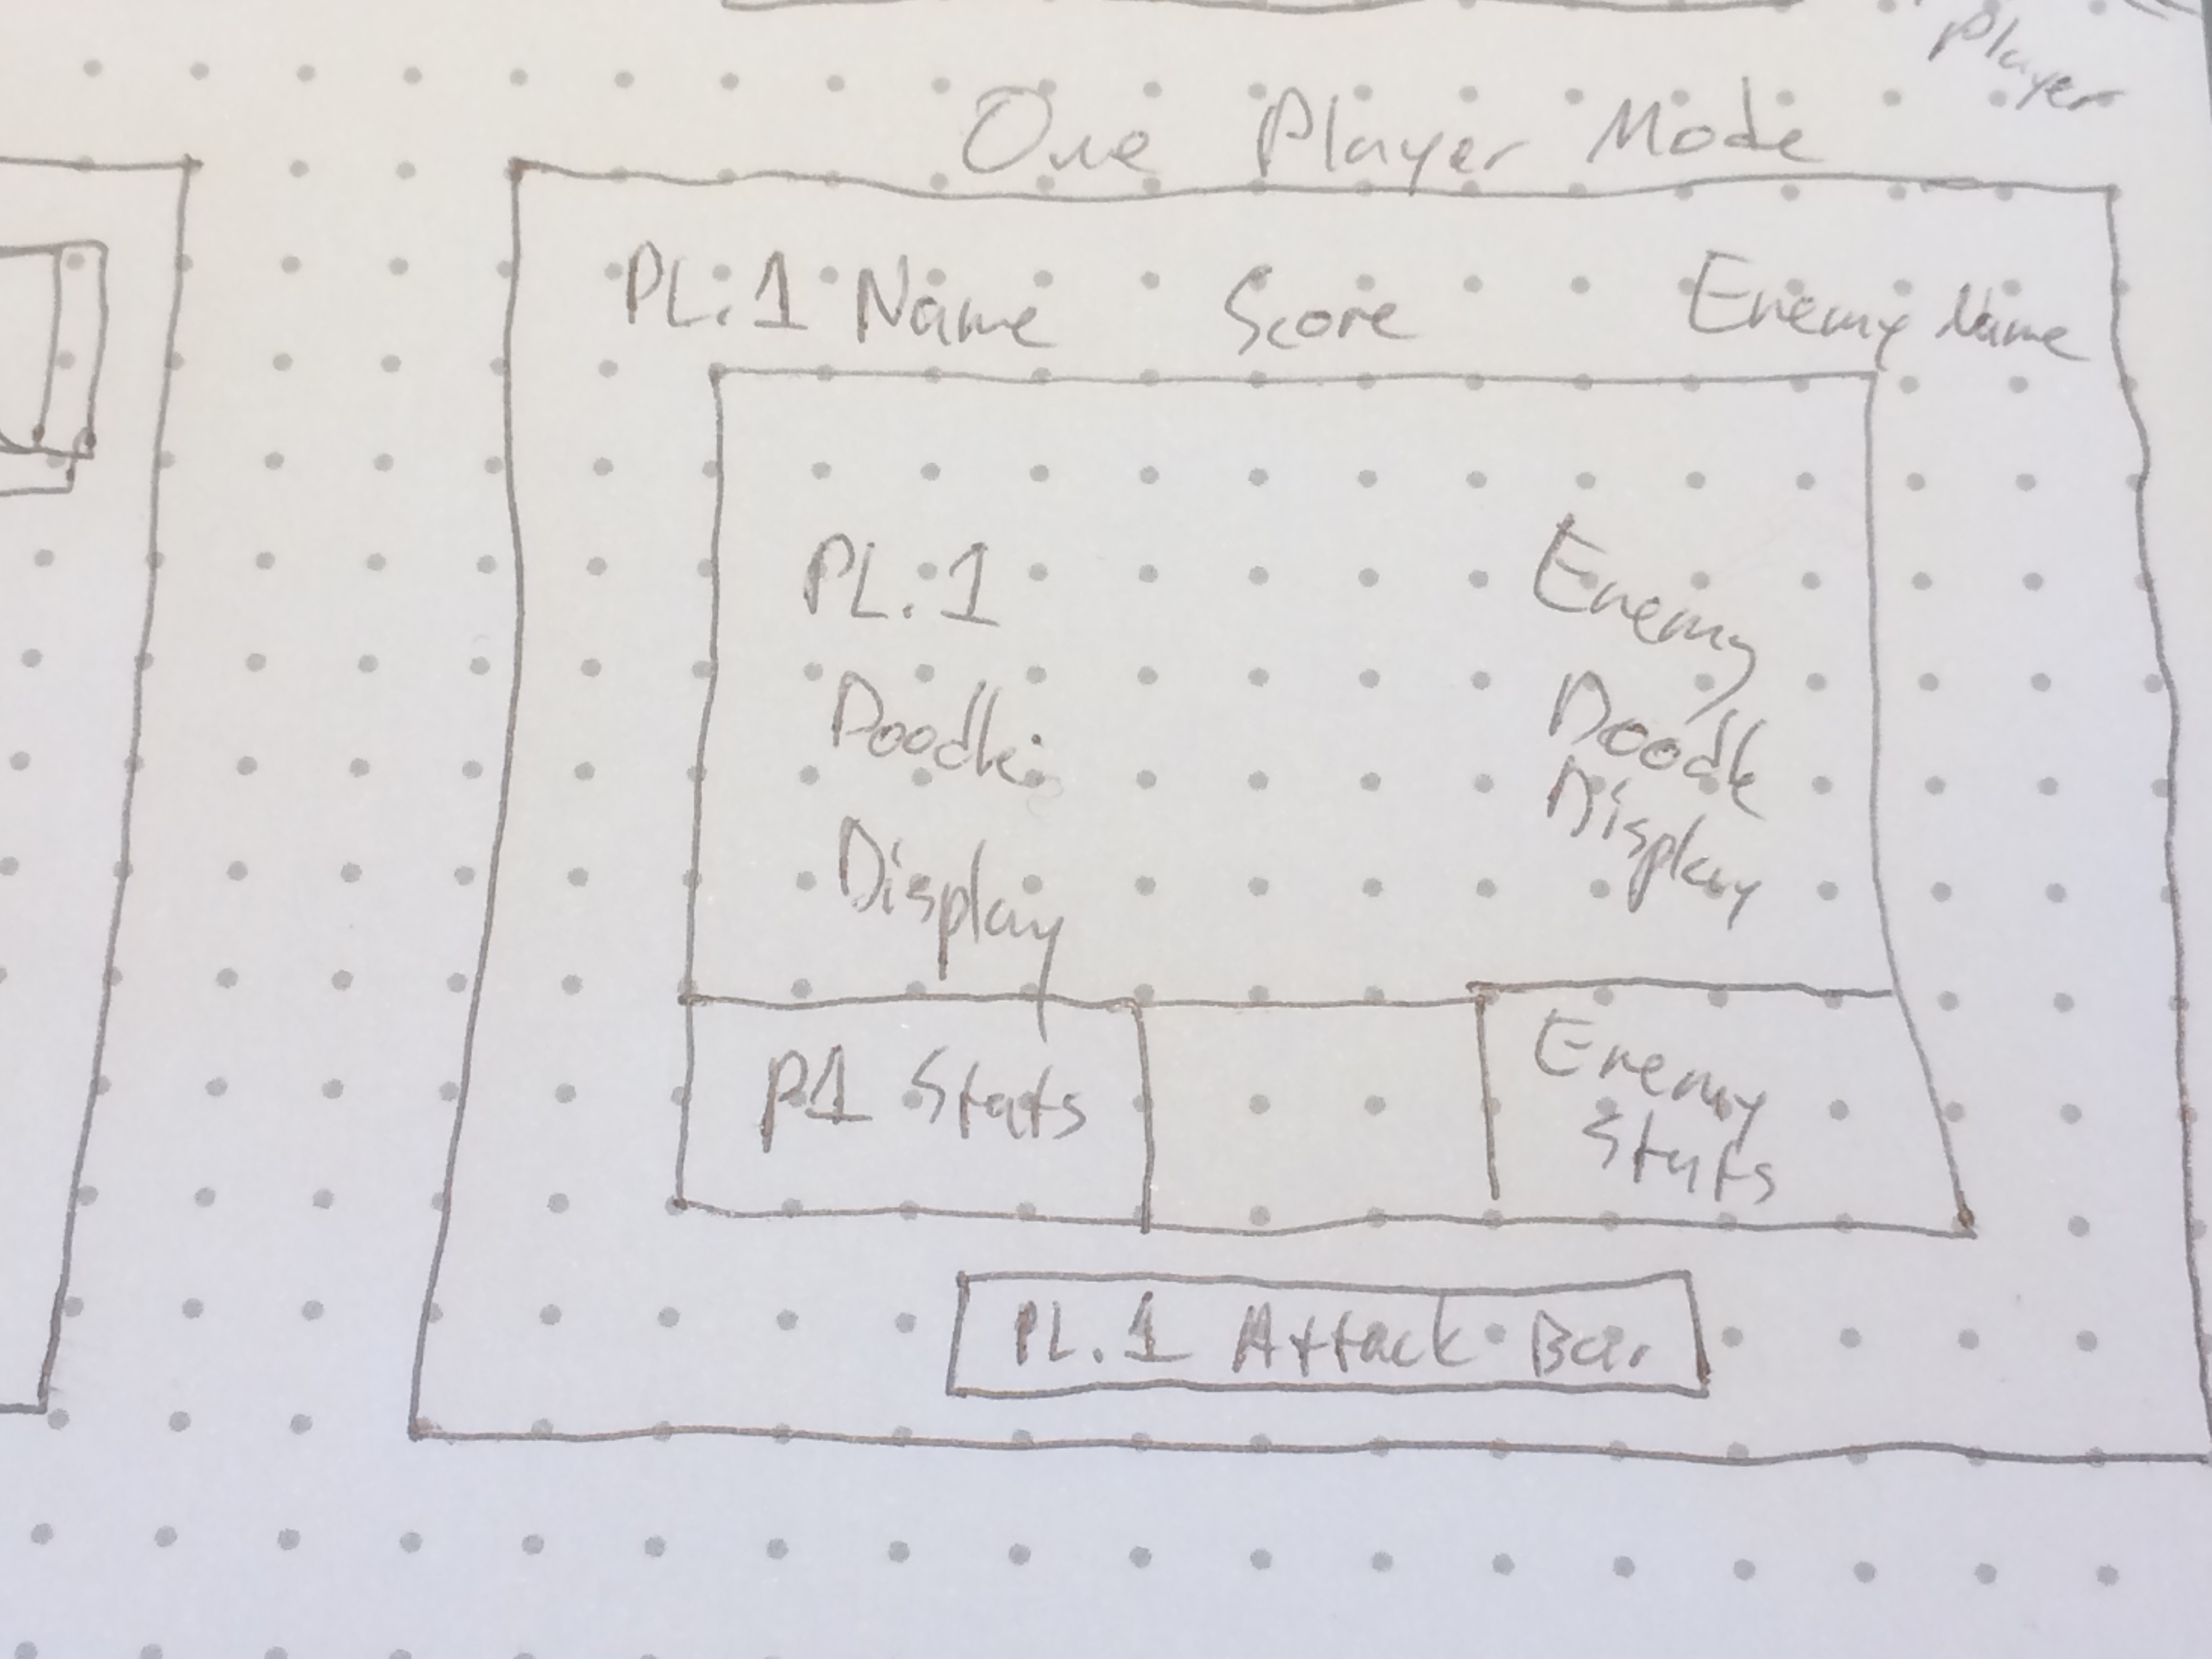 Player
One Player Mode
PL:1 Name Score Enemy Name
PL:1
Doodle
Display
Enemy
Doodle
Display
P1 Stats
Enemy
Stats
PL.1 Attack Bar